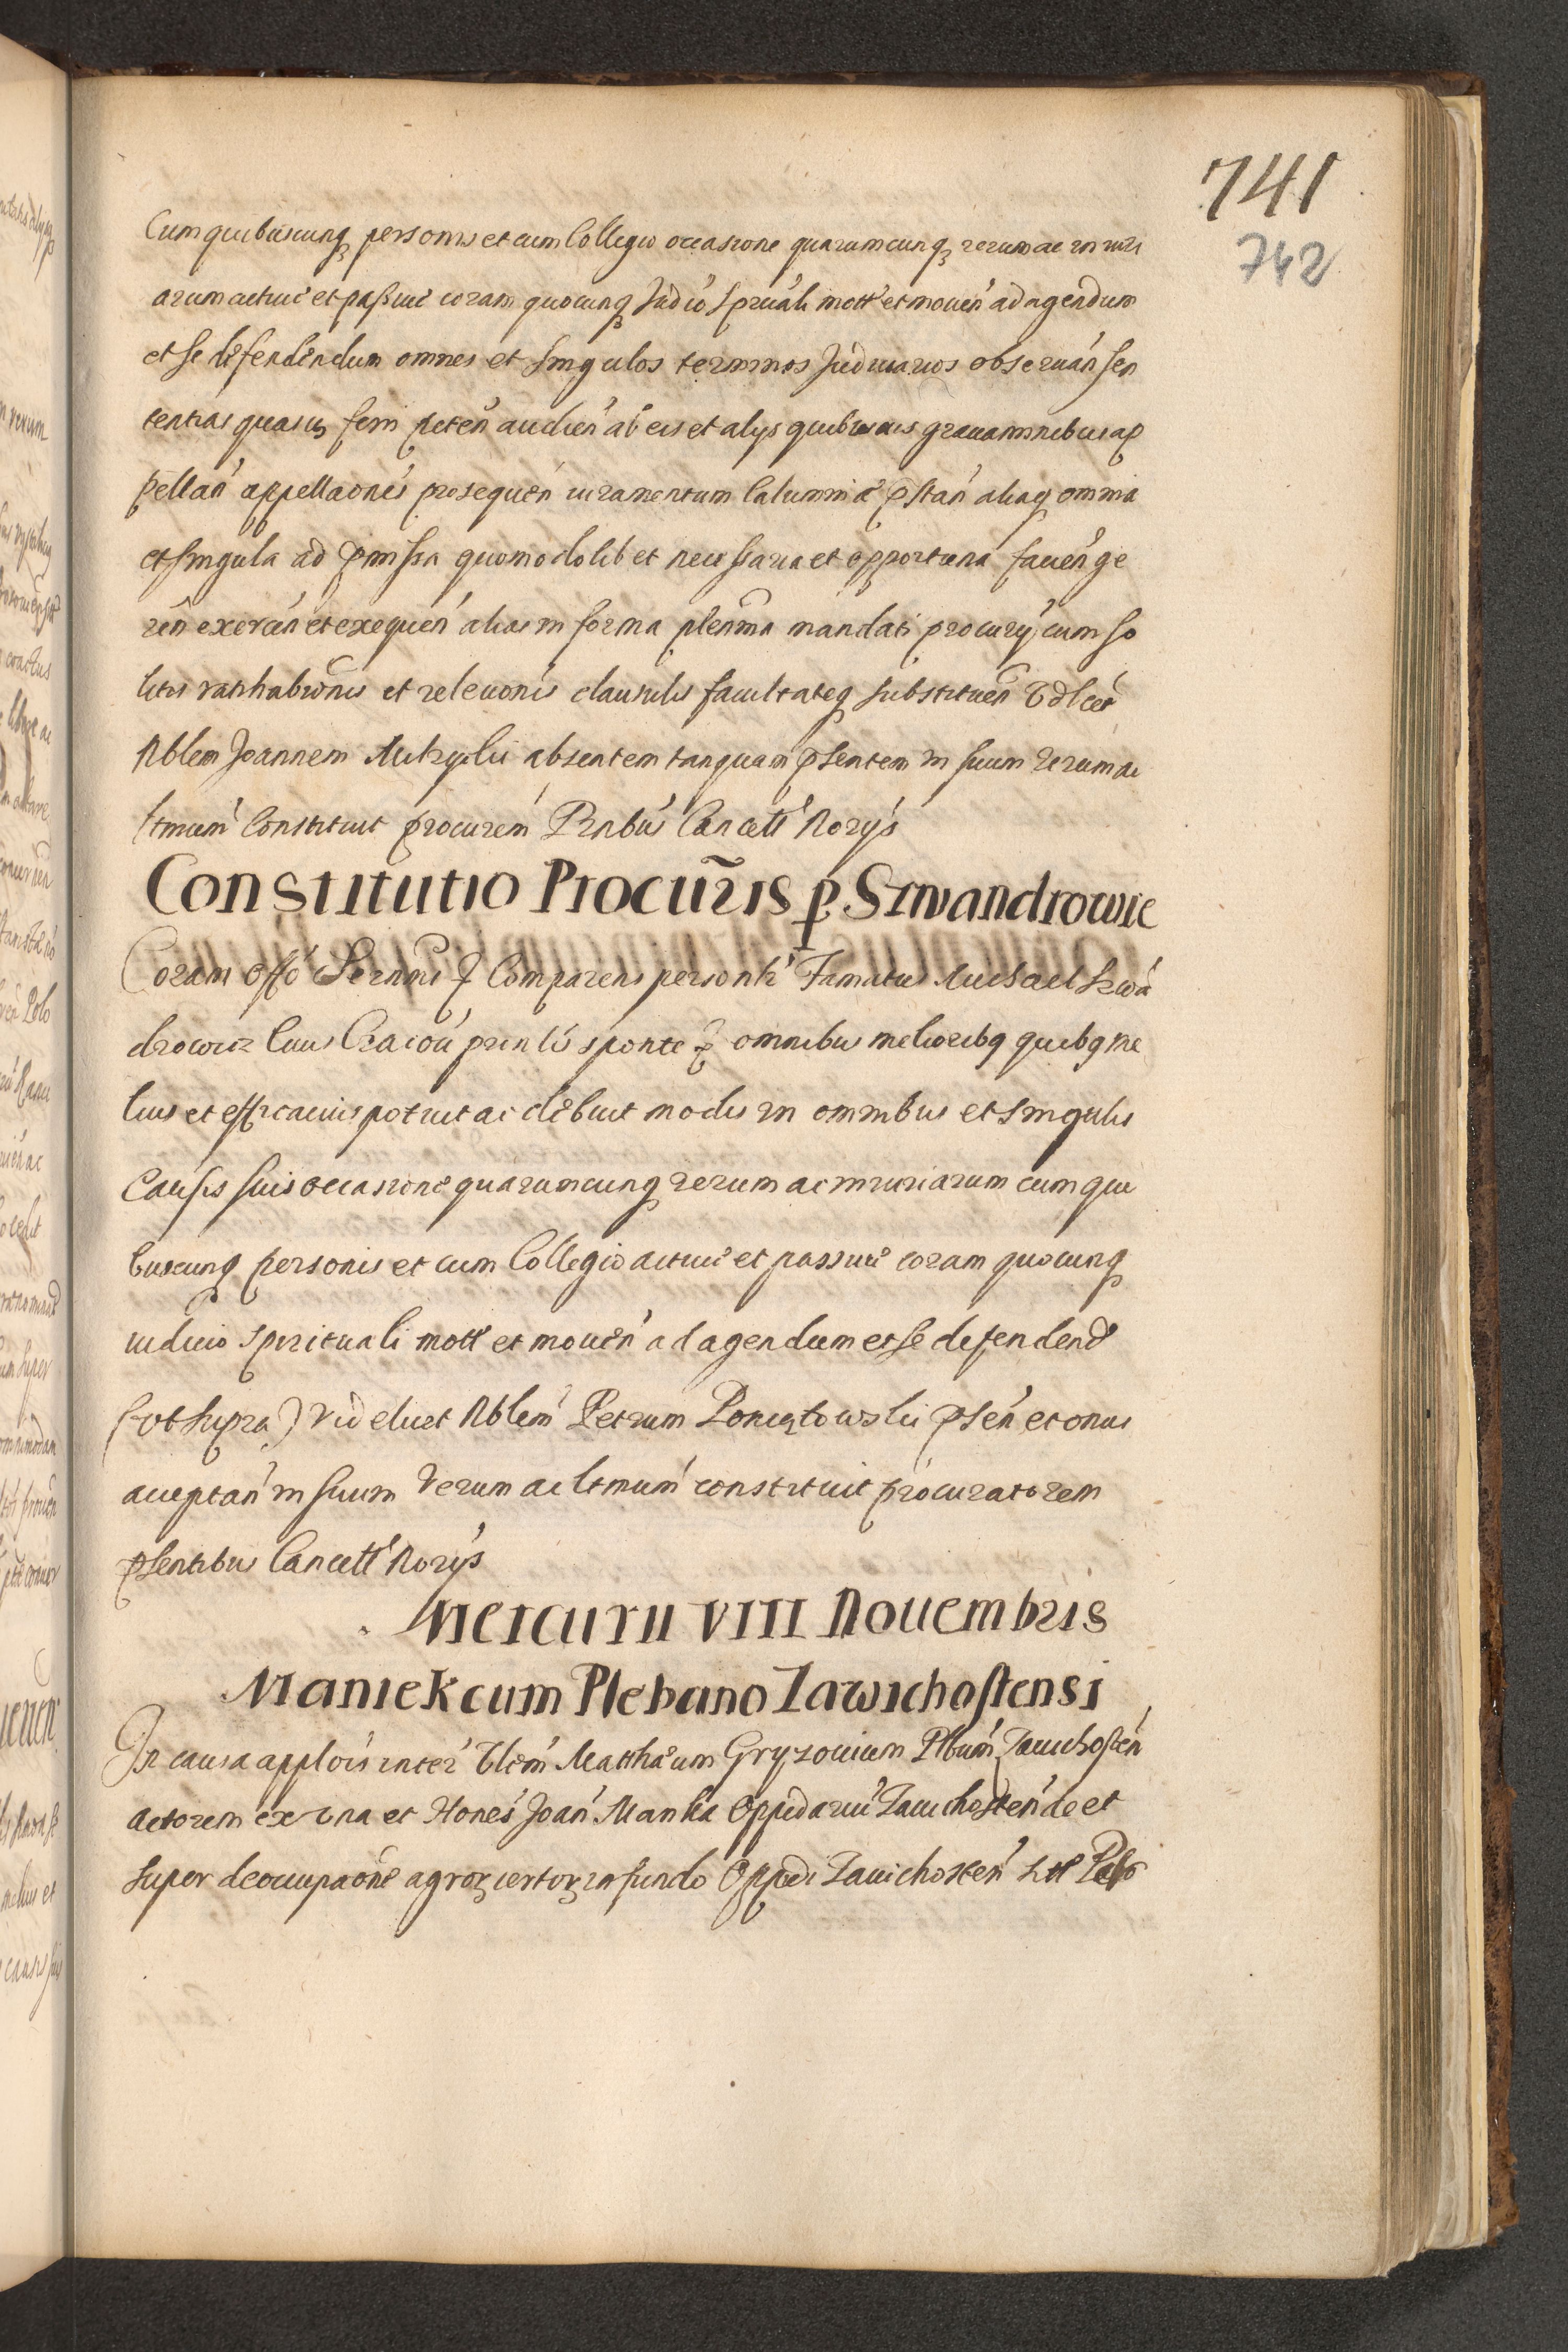 741
742
Cum quibuscunq personis et cum Collegio occasione quarumcunq rerum ac iniuri
arum actiue et passiue coram quocunq Judõ Spruáli mott' et mouen' ad agendum
et se defendendum omnes et singulos terminos Judiciarios obseruán sen
tentias quasuis ferri peten' audien' ab eis et alijs quibusuis grauaminibus ap
pellan' appellaones prosequén iuramentum Calumniæ pstán aliaq omnia
et singula ad pmissa quomodolibet necessaria et opportuna facien' ge
ren' exercen' et exequen' alias in forma plenma mandati procurij cum so
litis ratihabionis et releuonis clausulis facultateq substituen' Vdlcet
Nblem Joannem absentem tanquam psentem in suum verum ac
ltmum' Constituit procurem' Pntbus' Cancell' Norijs
Constitutio Procuris p Szwandrowic
Coram Offo' Serenmi Comparens personlr' Famatus Michael Szwá
drowicz Ciuis Cracou' prinlis sponte omnibus melioribq quibq me
lius et efficacius potuit ac debuit modis in omnibus et singulis
Causis suis occasione quarumcunq rerum ac iniuriarum cum qui
buscunq personis et cum Collegio actiue et passiue coram quocunq
iudicio Spirituali mott' et mouén' ad agendum et se defendend
(vt supra) videlicet Nblem' Petrum Poniątowski psen' et onus
acceptan' in suum verum ac ltmum' constituit procuratorem
psentibus Cancell' Norijs
Mercurii VIII Nouembris
Maniek cum Plebano Zawichostensi
In causa applois inter Vblem' Matthæum Gryzouium Plbum' Zauichostén
actorem ex vna et Hones' Joán' Manka Oppidanu' Zauichosten' de et
super deoccupaone agror certor in fundo Oppidi Zauichosten'